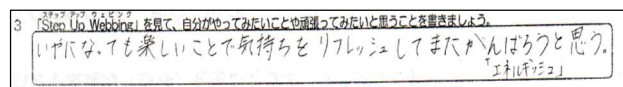 ステップ アップ ウェビング
3 「Step Up Webbing」を見て、自分がやってみたいことや頑張ってみたいと思うことを書きましょう。
いやになっても楽しいことで気持ちをリフレッシュしてまたがんばろうと思う。
「エネルギッシュ」